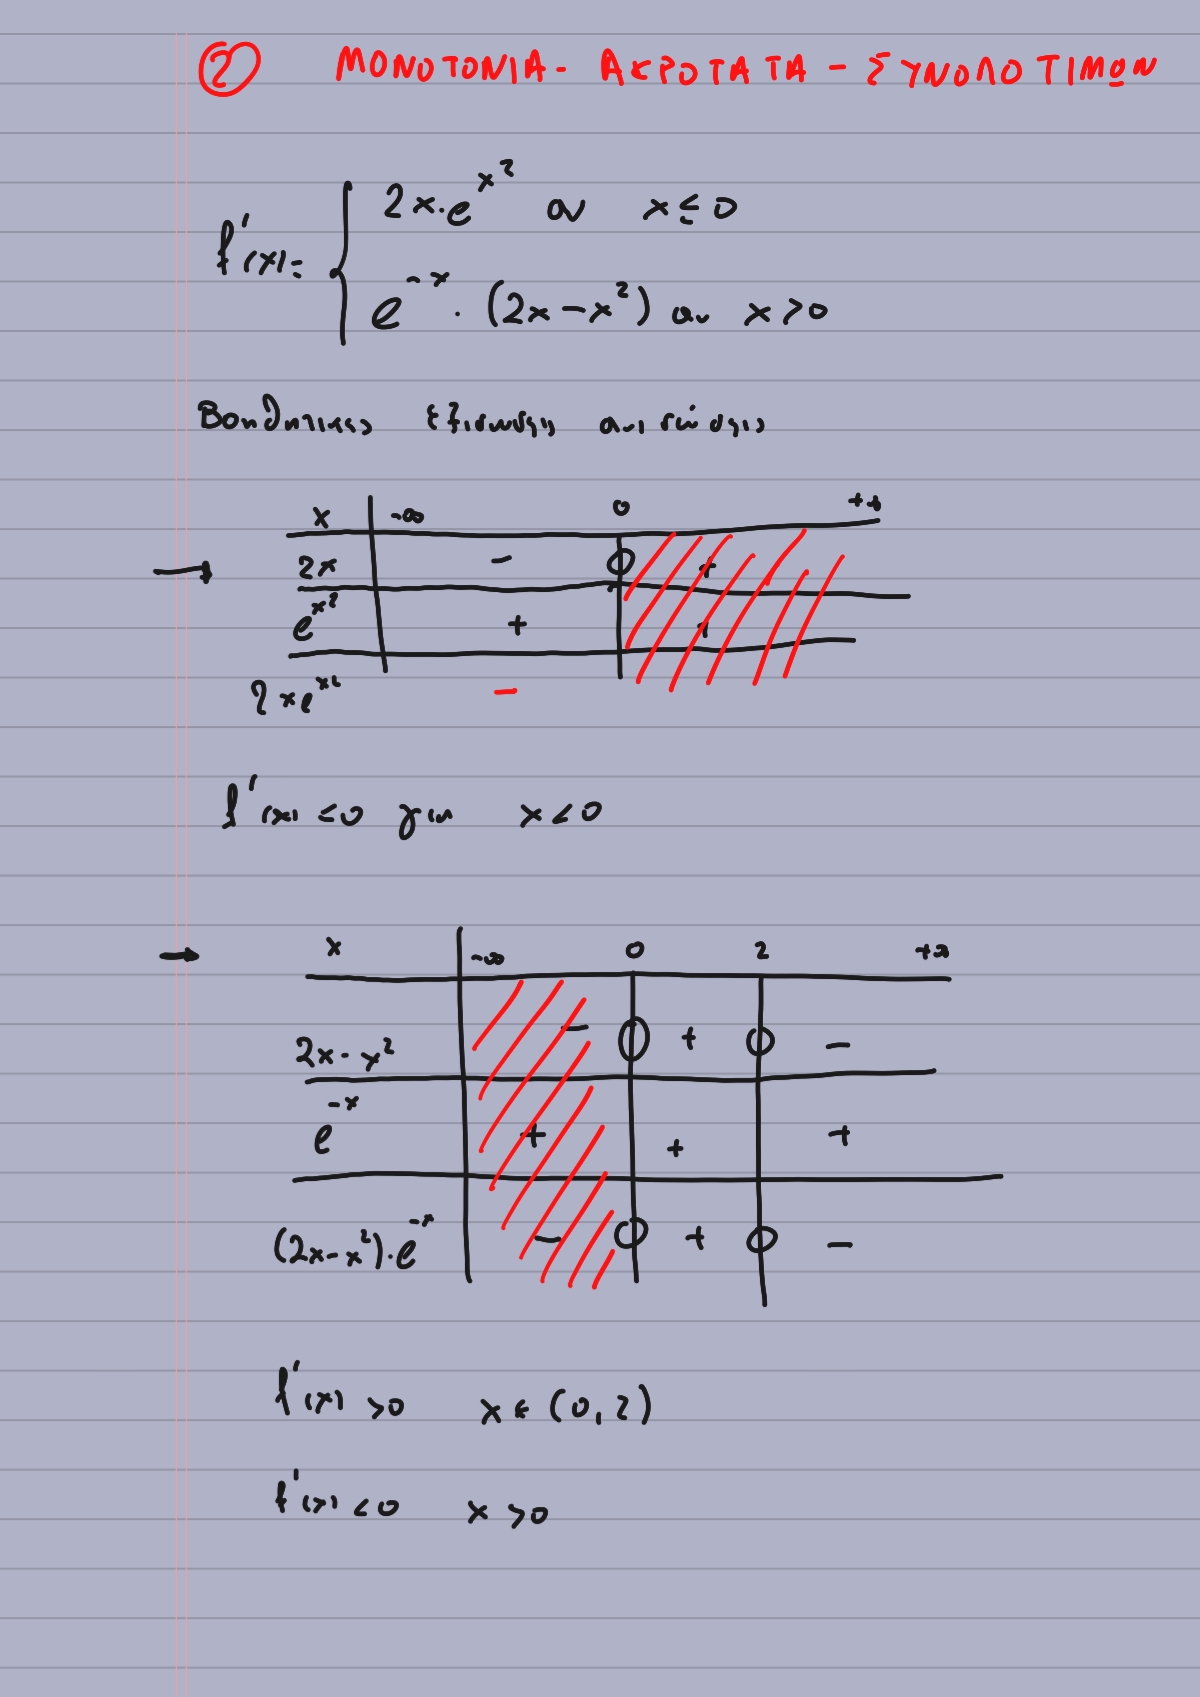 ② ΜΟΝΟΤΟΝΙΑ - ΑΚΡΟΤΑΤΑ - ΣΥΝΟΛΟ ΤΙΜΩΝ
f'(x) = { 2x·e^{x^2} αν x ≤ 0
e^{-x}·(2x-x^2) αν x > 0
Βοηθητικες εξισωσεις ανισώσεις
x -∞ 0 +∞
→ 2x - 0 +
e^{x^2} + +
2xe^{x^2} -
f'(x) ≤ 0 για x < 0
→ x -∞ 0 2 +∞
2x-x^2 - 0 + 0 -
e^{-x} + + +
(2x-x^2)·e^{-x} - 0 + 0 -
f'(x) > 0 x ∈ (0, 2)
f'(x) < 0 x > 0